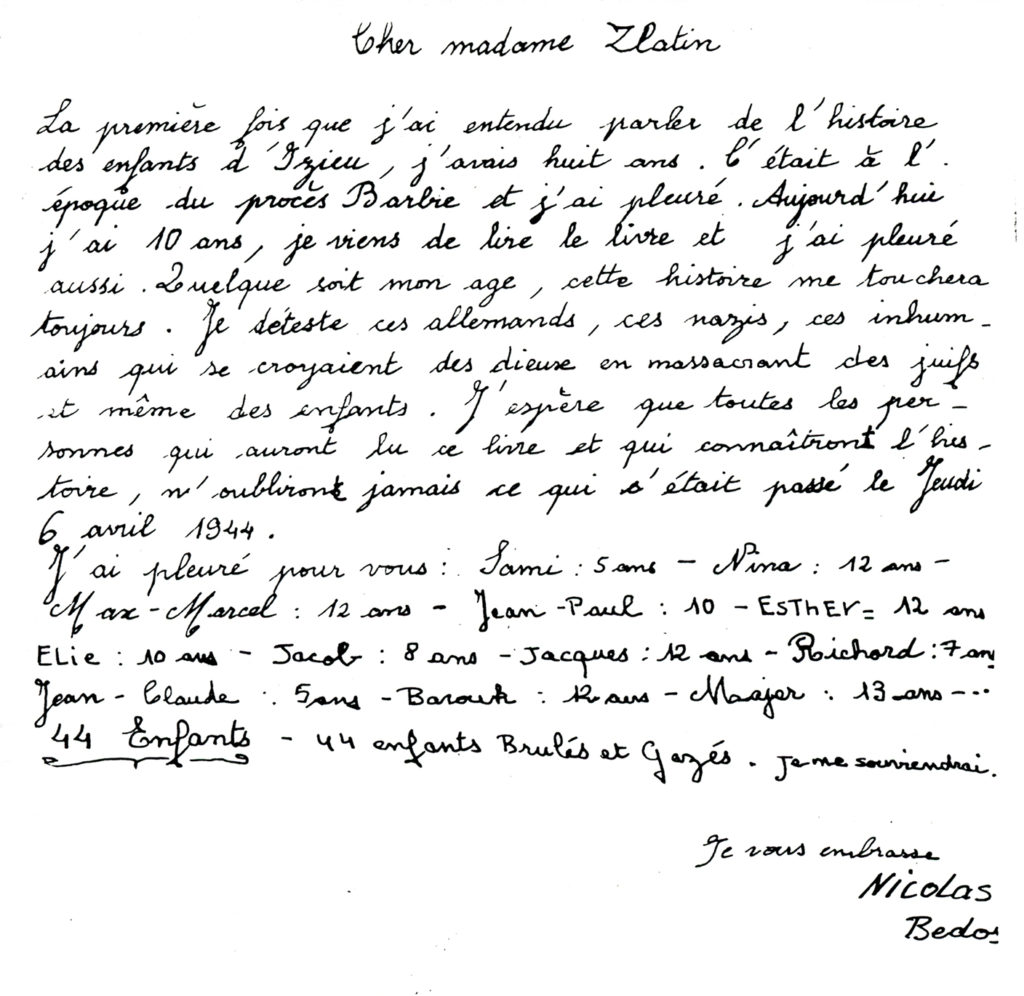 Cher madame Zlatin
La première fois que j'ai entendu parler de l'histoire
des enfants d'Izieu, j'avais huit ans. C'était à l'.
époque du procès Barbie et j'ai pleuré. Aujourd'hui
j'ai 10 ans, je viens de lire le livre et j'ai pleuré
aussi. Quelque soit mon age, cette histoire me touchera
toujours. Je déteste ces allemands, ces nazis, ces inhum-
ains qui se croyaient des dieux en massacrant des juifs
et même des enfants. J'espère que toutes les per-
sonnes qui auront lu ce livre et qui connaîtront l'his-
toire, n'oubliront jamais ce qui s'était passé le Jeudi
6 avril 1944.
J'ai pleuré pour vous : Sami : 5 ans - Nina : 12 ans -
Max-Marcel : 12 ans - Jean-Paul : 10 - Esther = 12 ans
Elie : 10 ans - Jacob : 8 ans - Jacques : 12 ans - Richard : 7 ans
Jean-Claude : 5 ans - Barouk : 12 ans - Maajer : 13 ans -...
44 Enfants - 44 enfants Brulés et Gazés. Je me souviendrai.
Je vous embrasse
Nicolas
Bedos